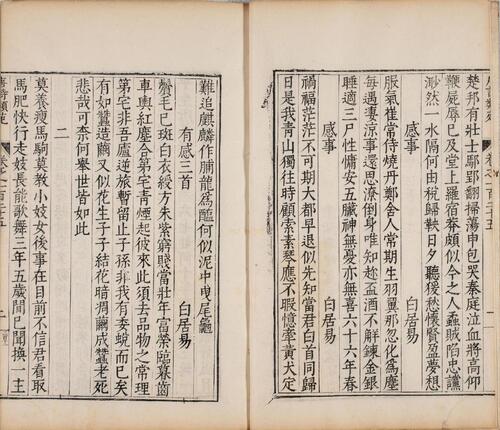 楚邦有壯士鄢郢翻掃蕩申包哭秦庭泣血將高仰
鞭屍辱已及堂上羅宿莽頗似今之人蟊賊陷忠讜
渺然一水隔何由稅歸鞅日夕聽猨愁懷賢盈夢想
感事 白居易
服氣崔常侍燒丹鄭舍人常期生羽翼那忽化爲塵
每遇淒涼事還思潦倒身唯知趁盃酒不解鍊金銀
睡適三尸性慵安五臟神無憂亦無喜六十六年春
感事 白居易
禍福茫茫不可期大都早退似先知當君白首同歸
日是我青山獨往時顧索素琴應不暇憶牽黃犬定
難追麒麟作脯龍爲醢何似泥中曳尾龜
有感三首 白居易
鬢毛已斑白衣綬方朱紫窮賤當壯年富榮臨暮齒
車輿紅塵合第宅青煙起彼來此須去品物之常理
第宅非吾廬逆旅暫留止子孫非我有委蛻而已矣
有如蠶造繭又似花生子子結花暗凋繭成蠶老死
悲哉可柰何舉世皆如此
二
莫養瘦馬駒莫教小妓女後事在目前不信君看取
馬肥快行走妓長能歌舞三年五歲間已聞換一主